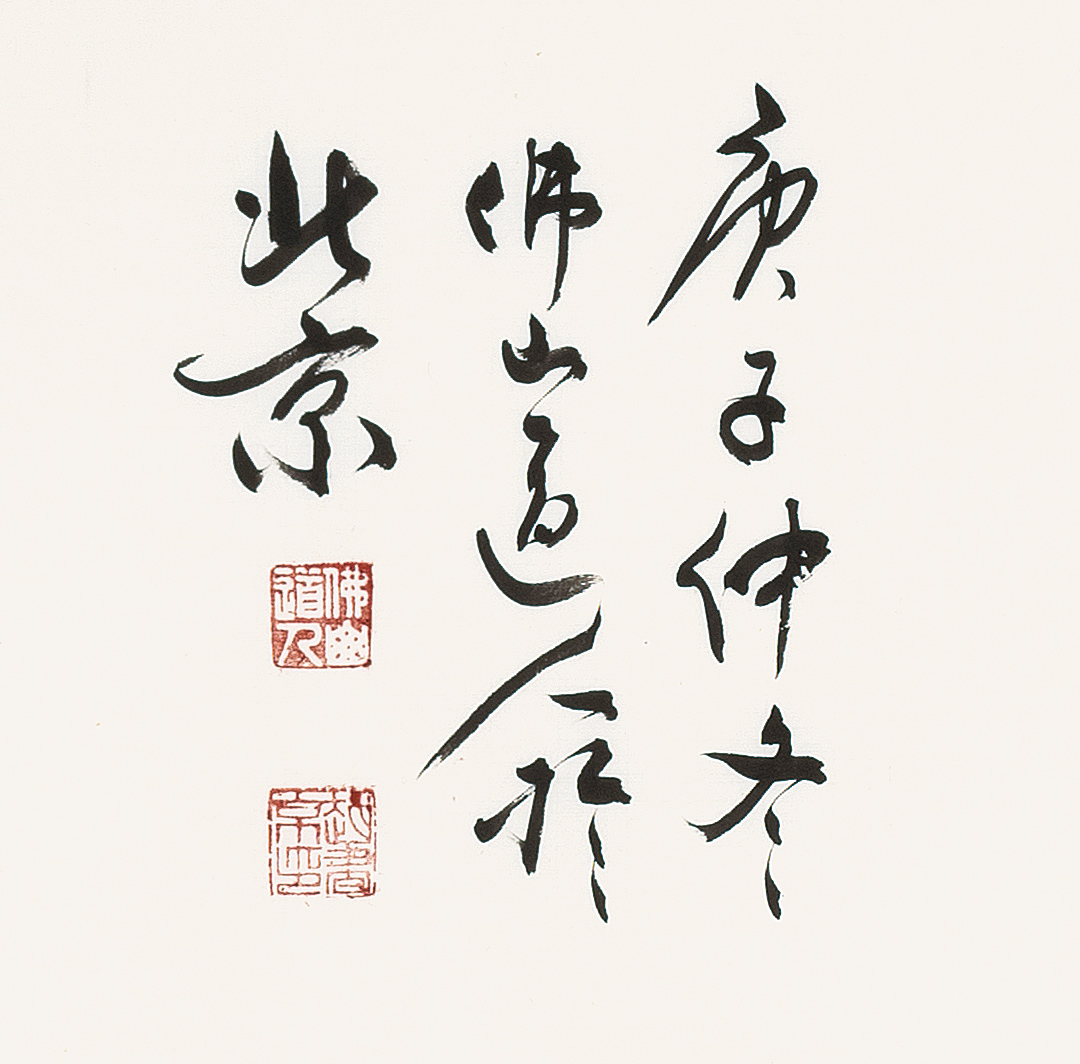 庚子仲冬
佛山道人於
北京
佛山
道人